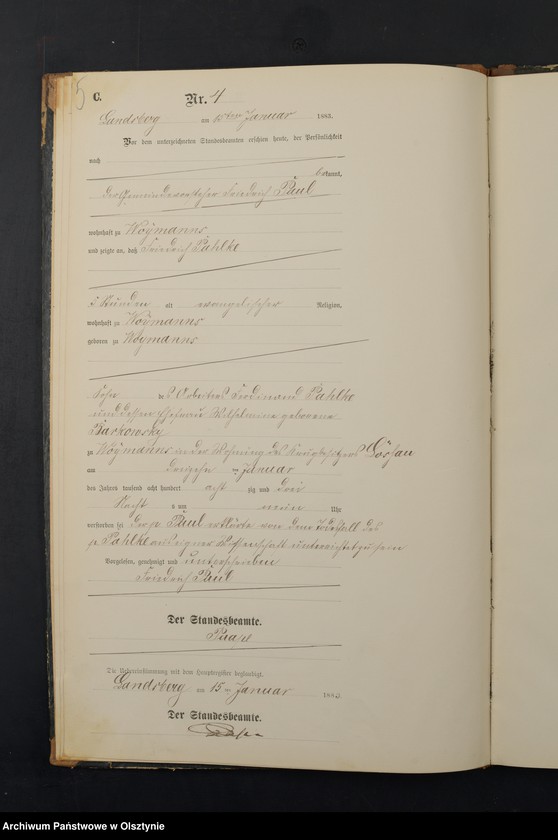 5
C.
Nr. 4
Landsberg am 15ten Januar 1883.
Vor dem unterzeichneten Standesbeamten erschien heute, der Persönlichkeit
nach
bekannt,
der Gemeindevorsteher Friedrich Paul
wohnhaft zu Woymanns
und zeigte an, daß Friedrich Pahlke
5 Stunden alt evangelischer Religion,
wohnhaft zu Woymanns
geboren zu Woymanns
Sohn des Arbeiters Ferdinand Pahlke
und dessen Ehefrau Wilhelmine geborene
Barkowsky
zu Woymanns in der Wohnung des
am dreizehn ten Januar
des Jahres tausend acht hundert acht zig und drei
Nachts um neun Uhr
verstorben sei der p. Paul erklärte von dem Todesfall des
p. Pahlke aus eigner Wissenschaft unterrichtet zu sein
Vorgelesen, genehmigt und unterschrieben
Friedrich Paul
Der Standesbeamte.
Die Uebereinstimmung mit dem Hauptregister beglaubigt.
Landsberg am 15ten Januar 1883.
Der Standesbeamte.
Archiwum Państwowe w Olsztynie